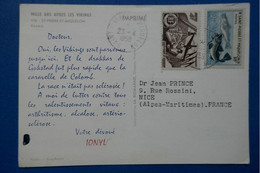 Docteur,
Oui, les Vikings sont parvenus
jusqu'ici. Et le drakkar de
Gokstad fut plus rapide que la
caravelle de Colomb.
La race n'était pas sclérosée!
A moi de lutter contre tous
les ralentissements vitaux:
arthritisme, alcoolisme, artério-
sclérose...
Votre dévoué
IONYL
Dr Jean PRINCE
9, Rue Rossini,
NICE
(Alpes-Maritimes).FRANCE